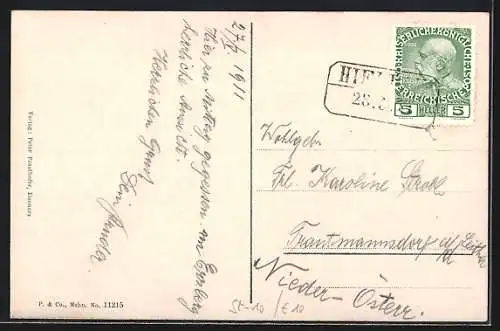 27/7 1911
Hier zu Mittag gegessen am Erzberg
herrliche Aussicht.
Herzlichen Gruss
Dein
Verlag: Peter Eisenerz
P. & Co., Mchn. No. 11215
KAISERLICHE KÖNIGLICHE
ÖSTERREICHISCHE POST
5 HELLER 5
HIEFL
28.
Wohlgeb.
Frl. Karoline
Trautmannsdorf a/d Leitha
Nieder-Österr.